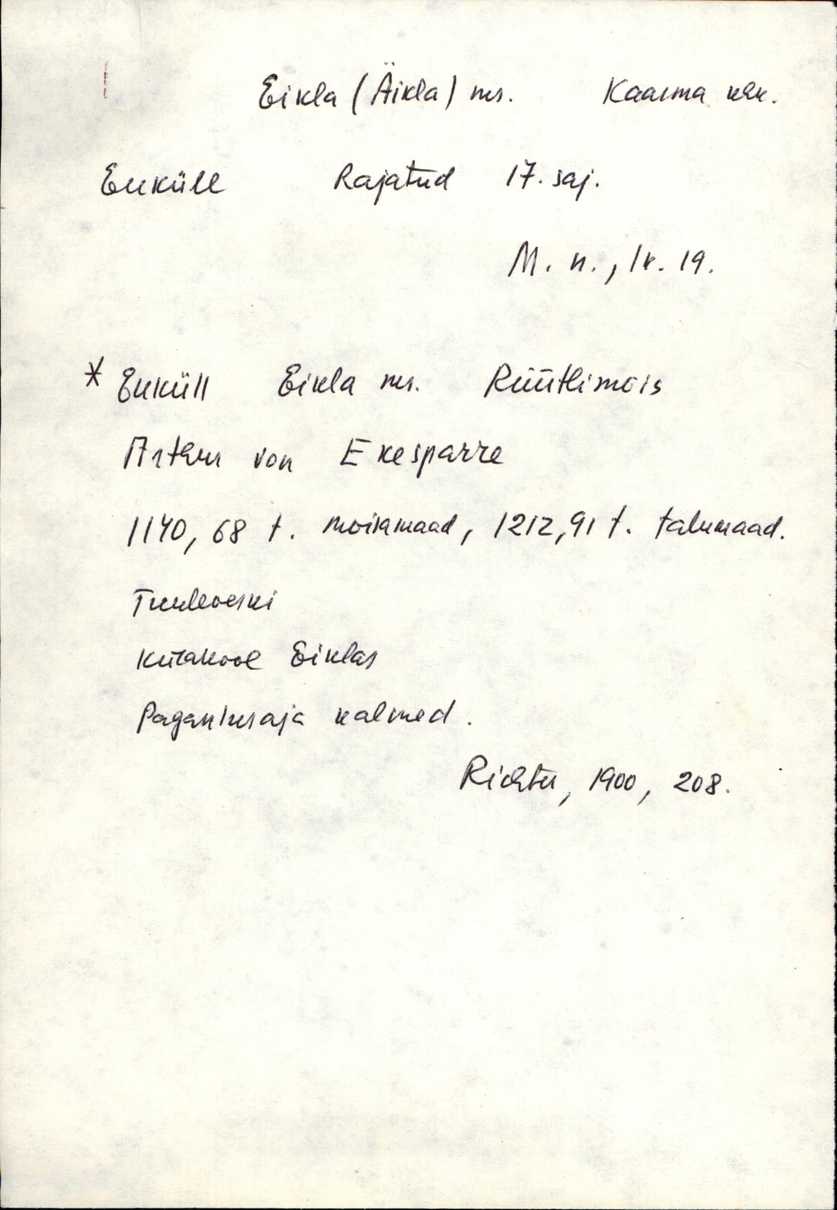 Eikla (Äikla) ms. Kaarma khk.
Euküll Rajatud 17. saj.
M. n., lk. 19.
* Euküll Eikla ms. Rüütlimõis
Arthur von Ekesparre
1140,68 t. mõisamaad, 1212,91 t. talumaad.
Tuuleveski
Külakool Eiklas
Paganlusaja kalmed.
Richter, 1900, 208.